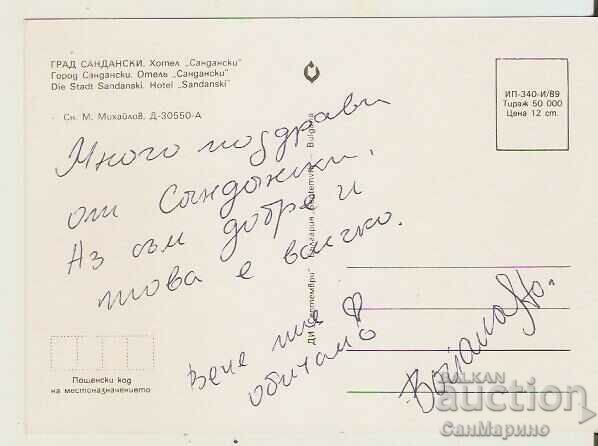 ГРАД САНДАНСКИ. Хотел „Сандански"
Город Сандански. Отель „Сандански"
Die Stadt Sandanski. Hotel „Sandanski"
Сн. М. Михайлов, Д-30550-А
ИП-340-И/89
Тираж 50 000
Цена 12 ст.
Много поздрави
от Сандански.
Аз съм добре и
това е всичко.
Вече ти
обичам
ДИ „Септември" България „Septemvri" Bulgaria
Пощенски код
на местоназначението
BALKAN
auction
СанМарино